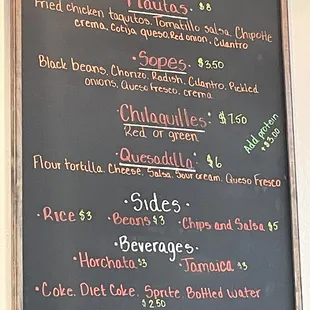 Flautas. $8
Fried chicken taquitos. Tomatillo salsa. Chipotle
crema. Cotija queso. Red onion. Cilantro
·Sopes· $3.50
Black beans. Chorizo. Radish. Cilantro. Pickled
onions. Queso fresco. crema
Chilaquilles: $7.50
Red or green
Add protein
+$3.00
·Quesadilla· $6
Flour tortilla. Cheese. Salsa. Sour cream. Queso Fresco
·Sides·
·Rice $3 ·Beans $3 ·Chips and Salsa $5
·Beverages·
·Horchata $3 ·Jamaica $3
·Coke. Diet Coke. Sprite. Bottled Water
$2.50